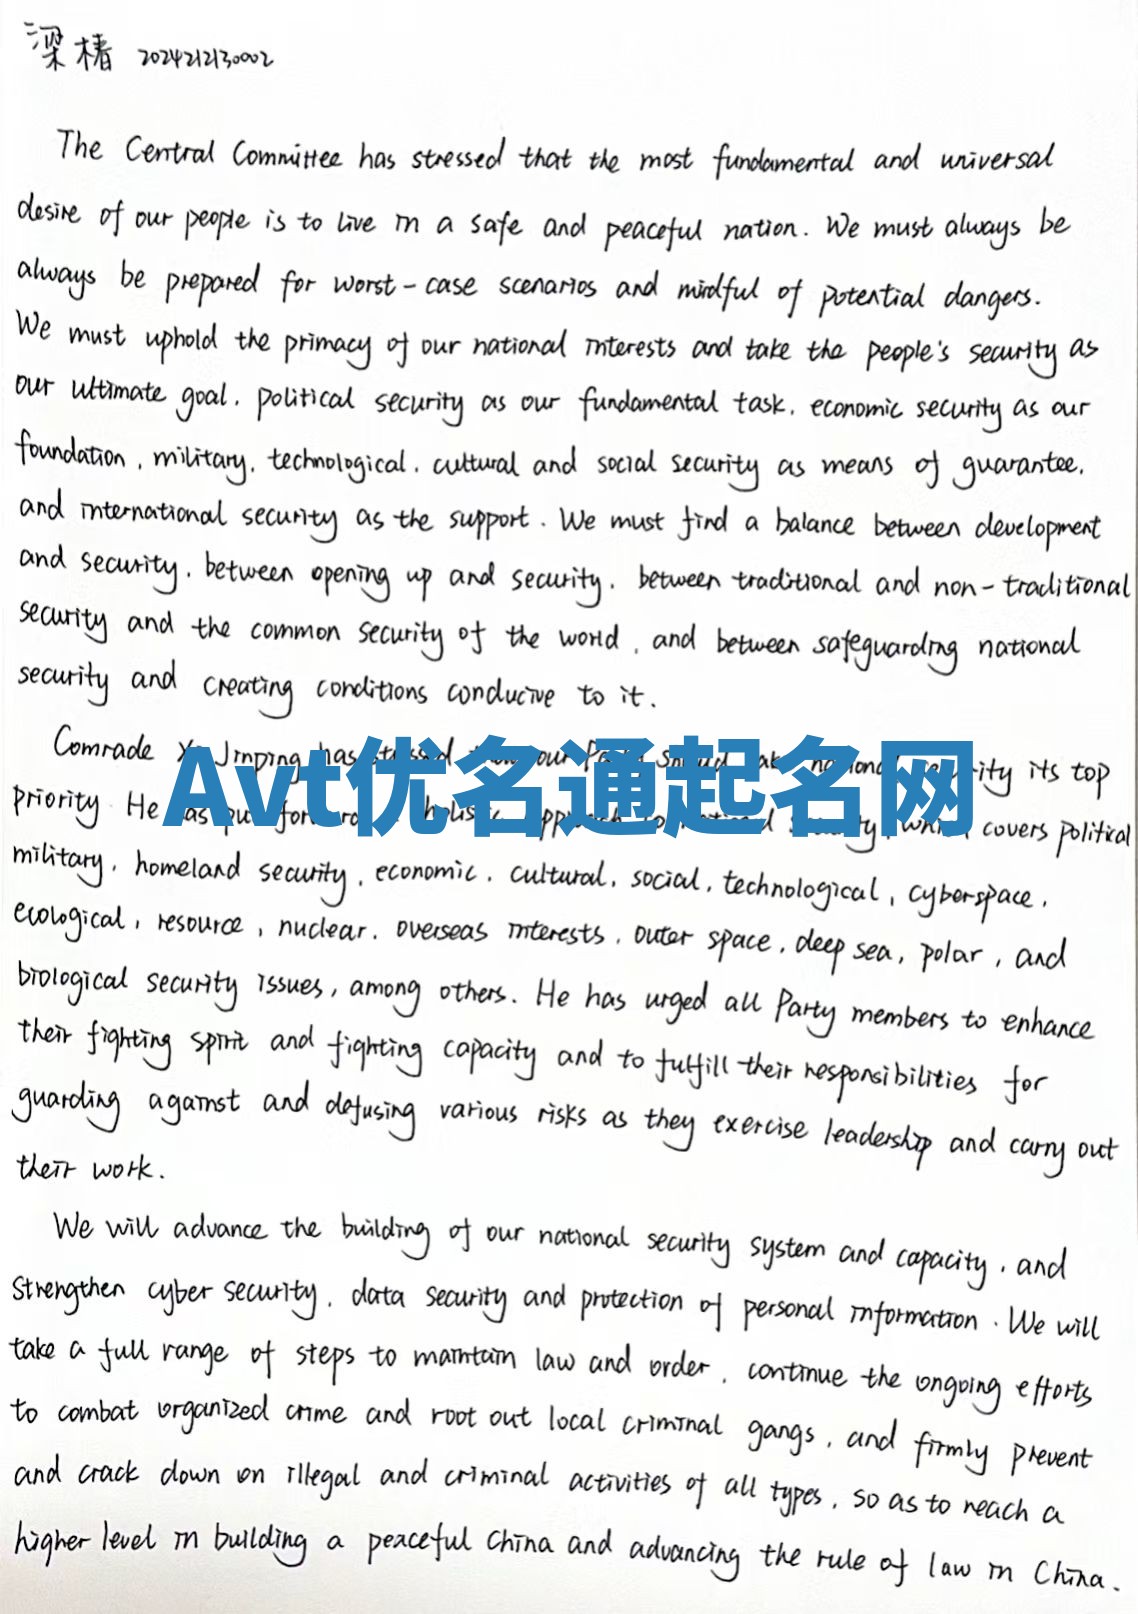 梁椿 2024212130002
The Central Committee has stressed that the most fundamental and universal
desire of our people is to live in a safe and peaceful nation. We must always be
always be prepared for worst-case scenarios and mindful of potential dangers.
We must uphold the primacy of our national interests and take the people's security as
our ultimate goal, political security as our fundamental task, economic security as our
foundation, military, technological, cultural and social security as means of guarantee,
and international security as the support. We must find a balance between development
and security, between opening up and security, between traditional and non-traditional
security and the common security of the world, and between safeguarding national
security and creating conditions conducive to it.
Comrade Jinping has our its top
Avt优名通起名网
priority. He covers political
military, homeland security, economic, cultural, social, technological, cyberspace,
ecological, resource, nuclear, overseas interests, outer space, deep sea, polar, and
biological security issues, among others. He has urged all Party members to enhance
their fighting spirit and fighting capacity and to fulfill their responsibilities for
guarding against and defusing various risks as they exercise leadership and carry out
their work.
We will advance the building of our national security system and capacity, and
strengthen cyber security, data security and protection of personal information. We will
take a full range of steps to maintain law and order, continue the ongoing efforts
to combat organized crime and root out local criminal gangs, and firmly prevent
and crack down on illegal and criminal activities of all types, so as to reach a
higher level in building a peaceful China and advancing the rule of law in China.